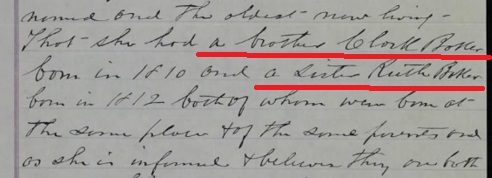 named and the oldest now living -
That she had a brother Clark Baker
born in 1810 and a sister Ruth Baker
born in 1812 both of whom were born at
the same place & of the same parents and
as she is informed & believes they are both